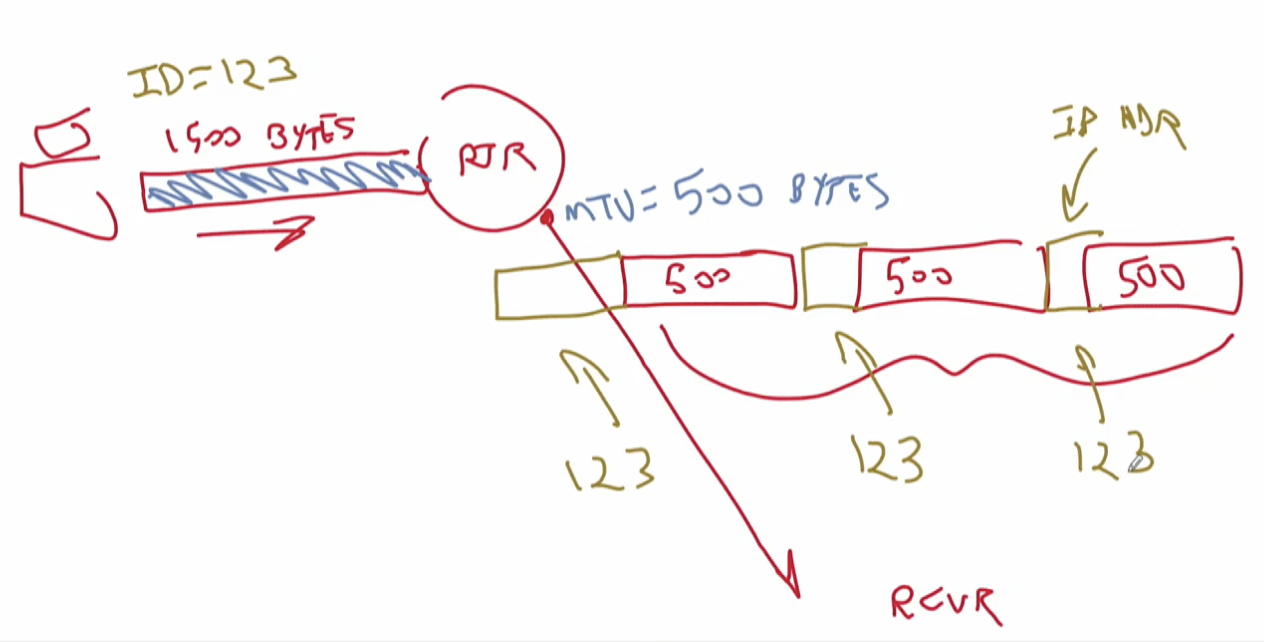 ID=123
1500 BYTES
RTR
IP HDR
MTU=500 BYTES
500
500
500
123
123
123
RCVR